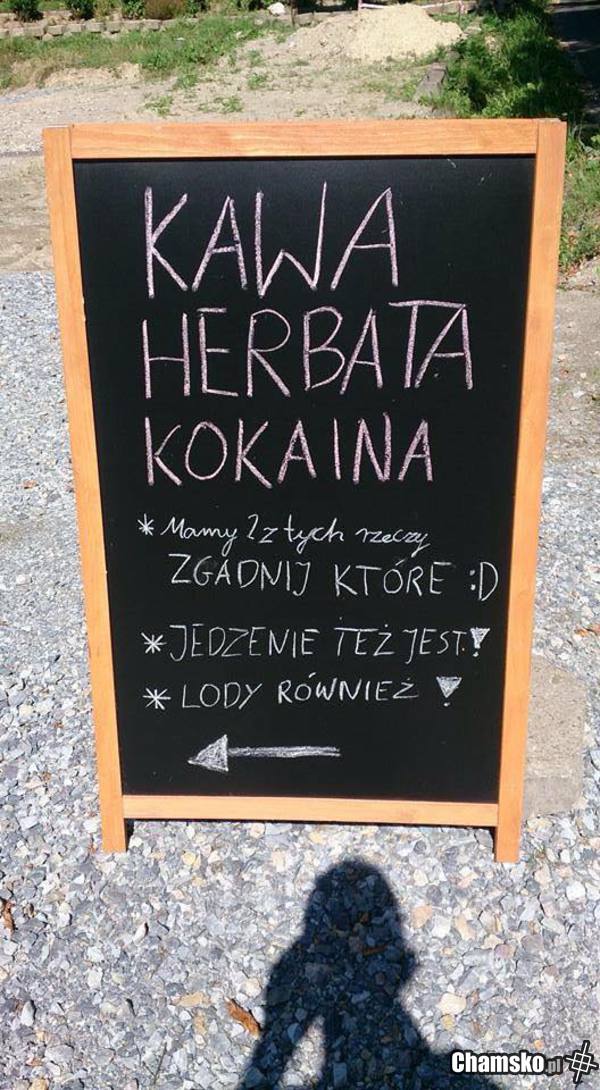 KAWA
HERBATA
KOKAINA
* Mamy 2 z tych rzeczy
ZGADNIJ KTÓRE :D
* JEDZENIE TEŻ JEST!
* LODY RÓWNIEŻ !
Chamsko.pl